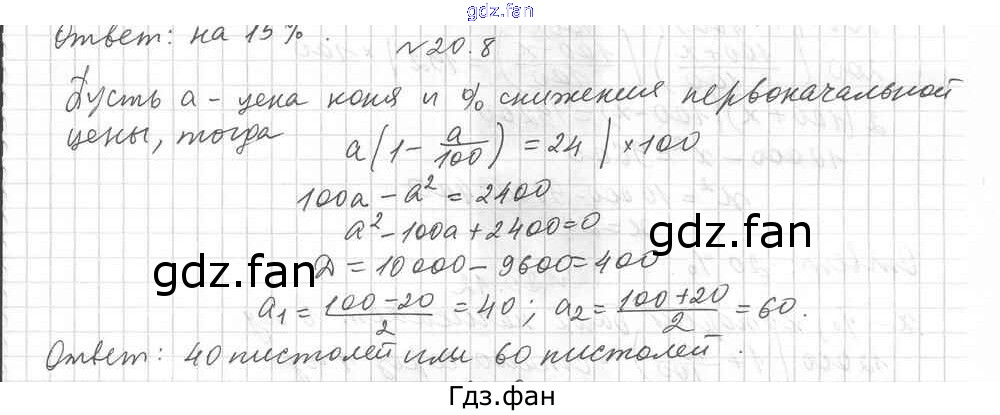 gdz.fan
Ответ: на 15%.
№20.8
Пусть a - цена коня и % снижения первоначальной
цены, тогда
a(1 - a/100) = 24 | ×100
100a - a² = 2400
a² - 100a + 2400 = 0
gdz.fan
gdz.fan
Д = 10000 - 9600 = 400
a₁ = (100-20)/2 = 40; a₂ = (100+20)/2 = 60.
Ответ: 40 пистолей или 60 пистолей.
Гдз.фан